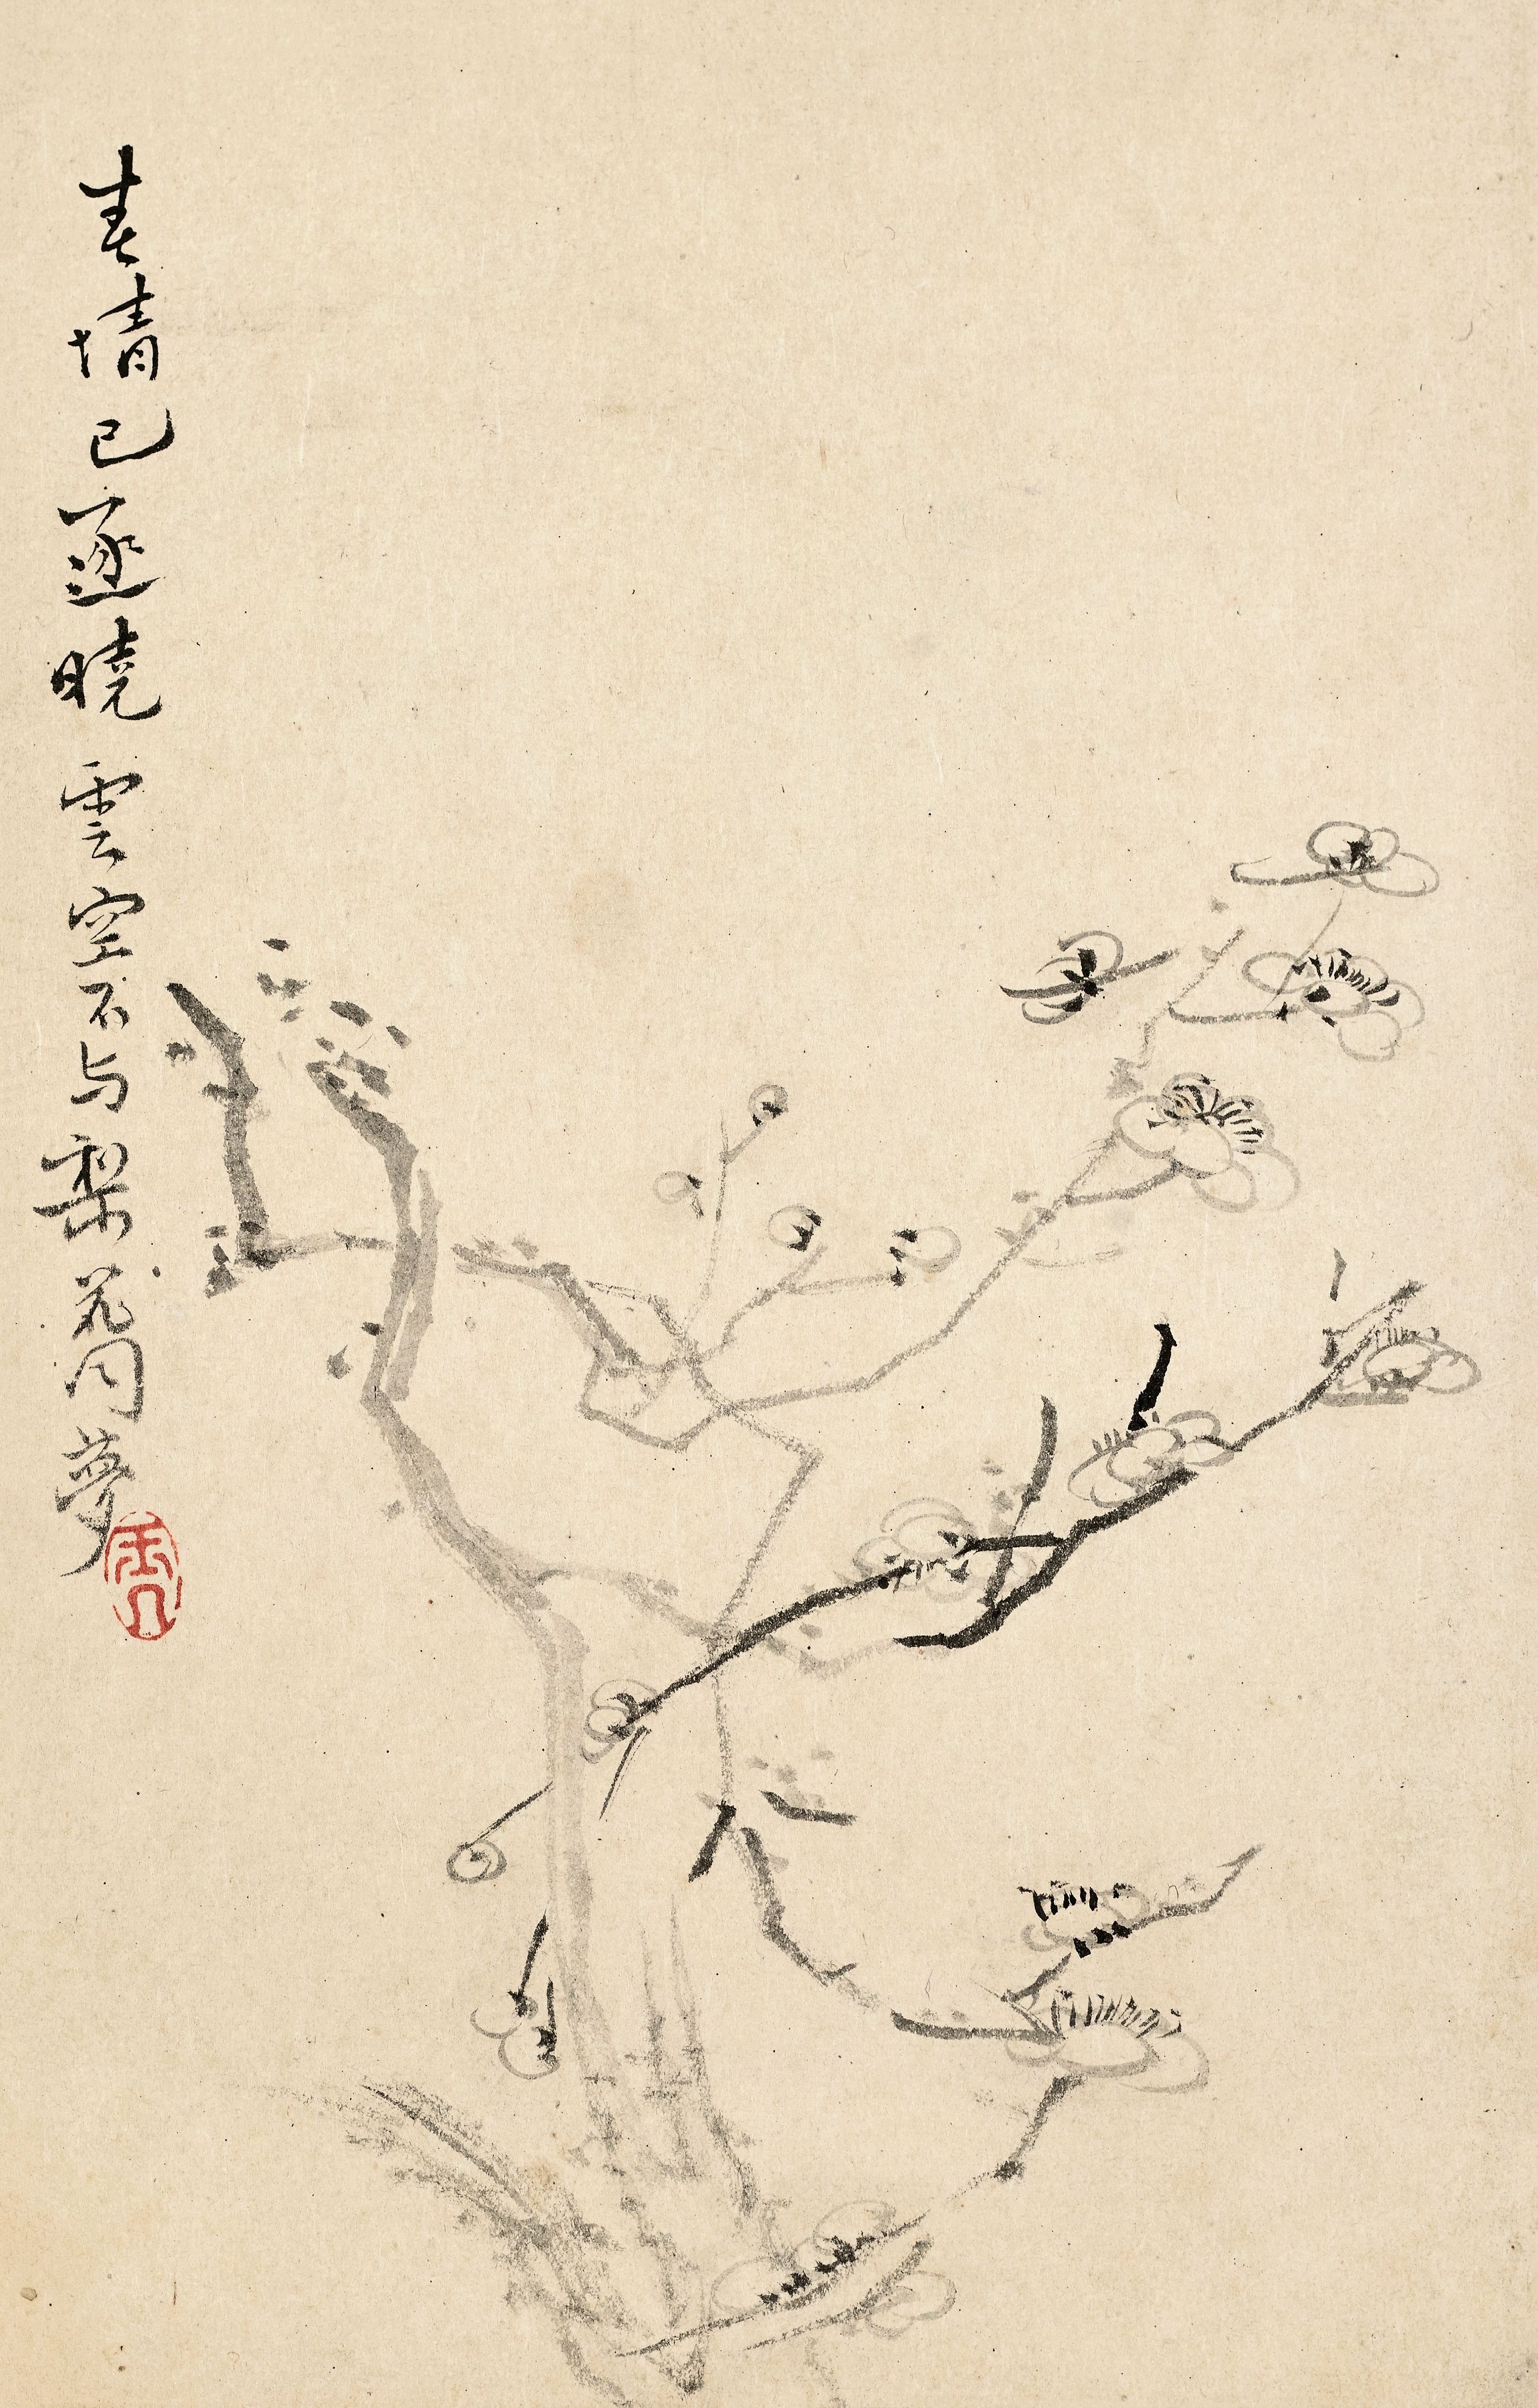 春情已逐曉雲空不与梨花同夢